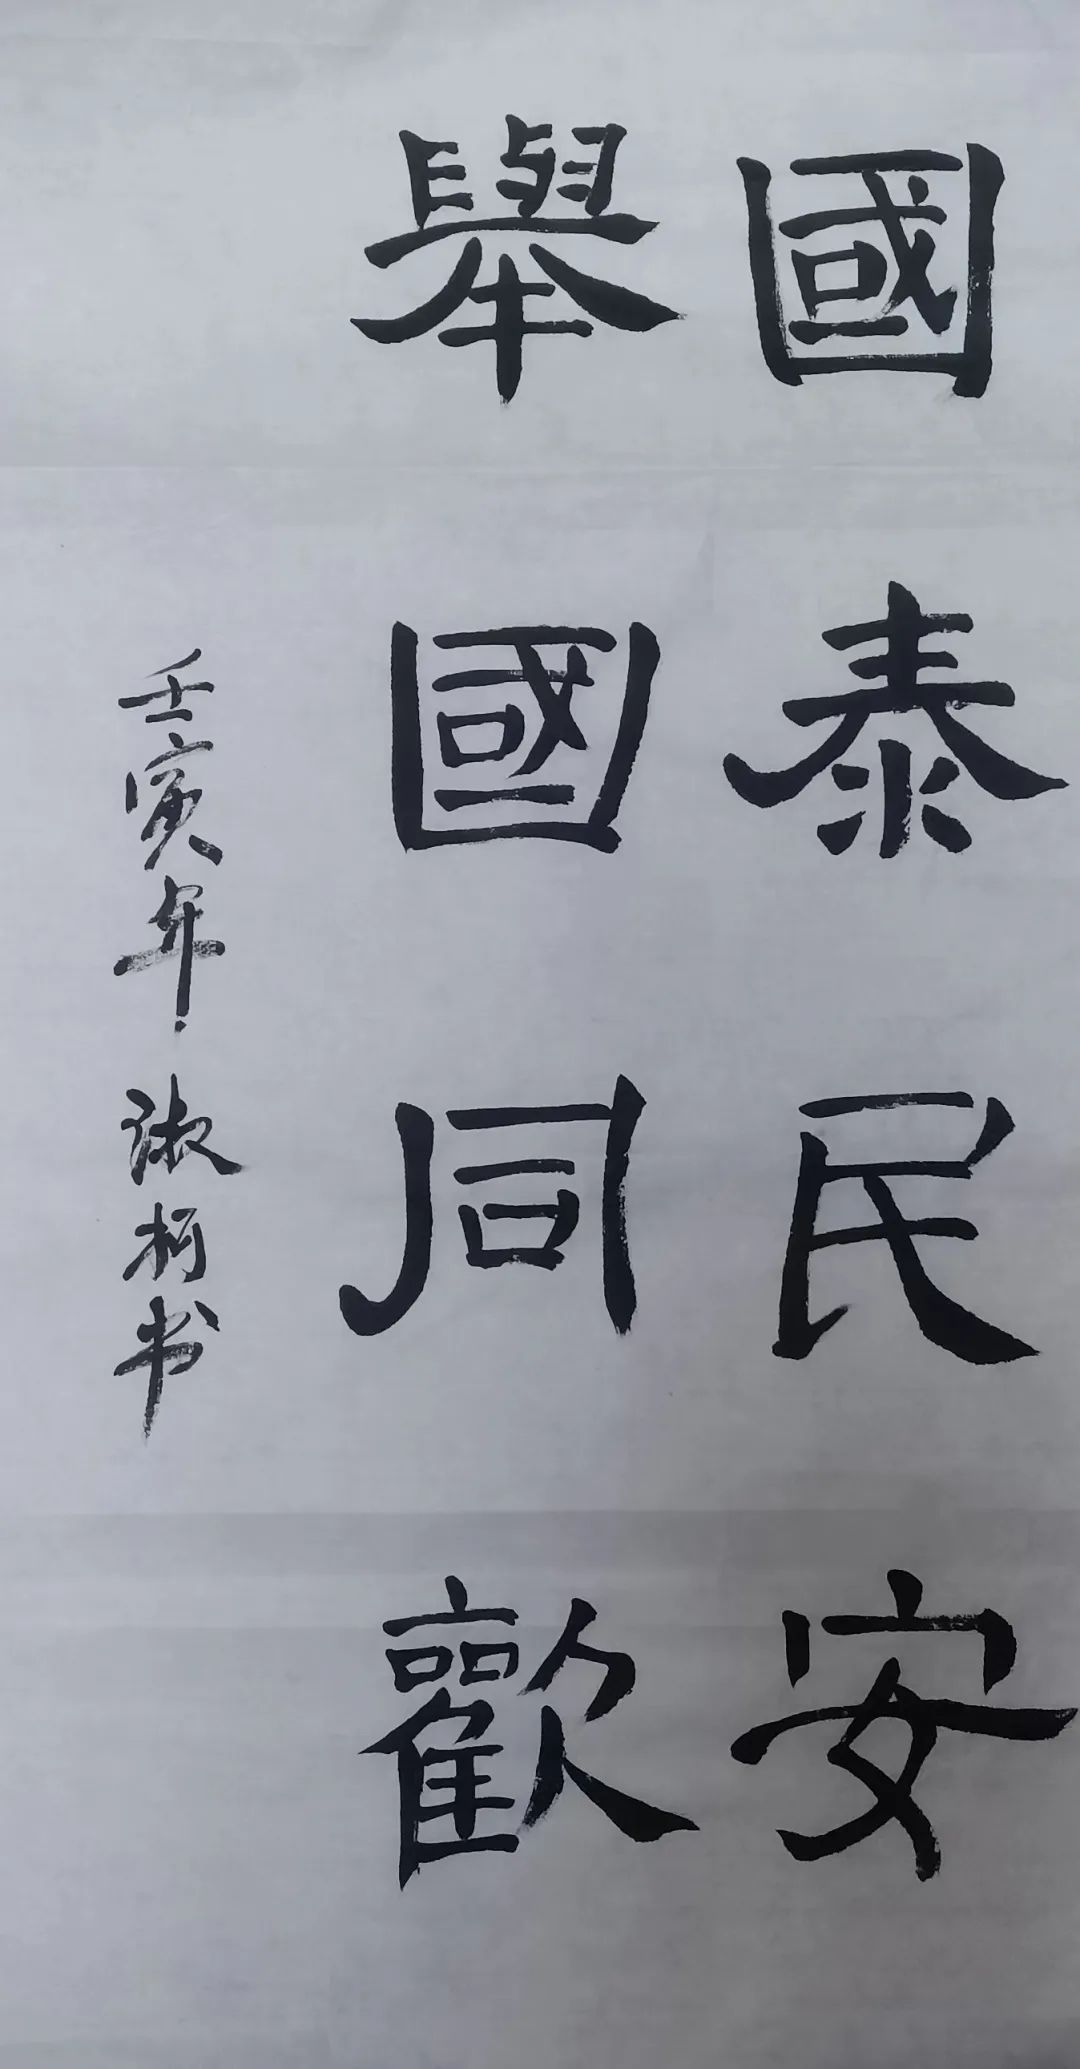 國泰民安
舉國同歡
壬寅年淑柯书